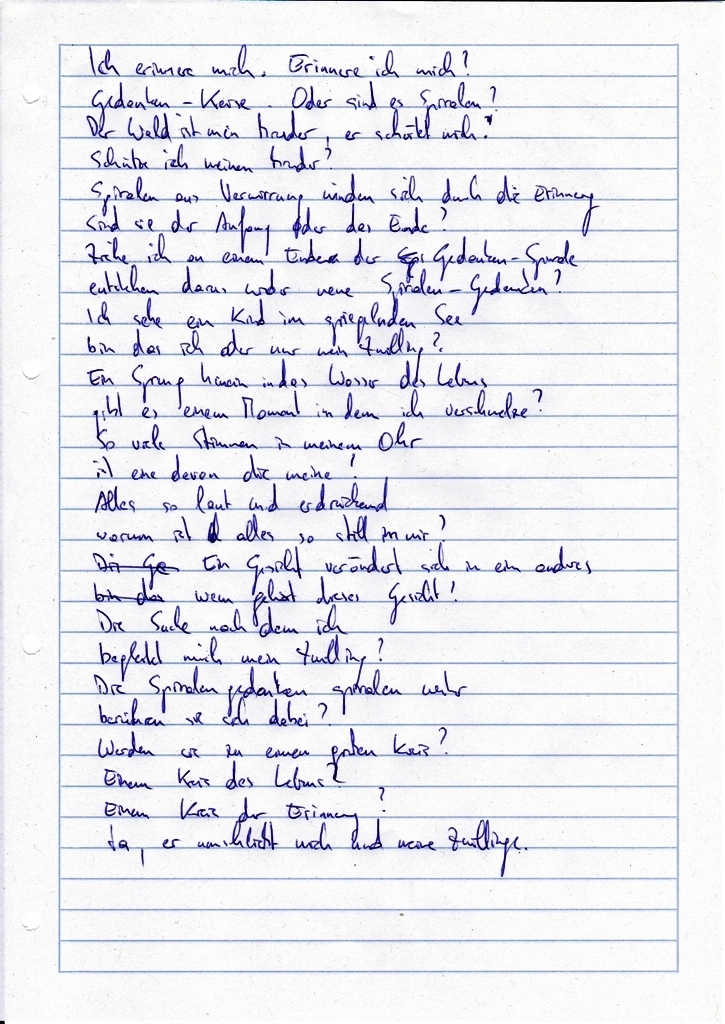 Ich erinnere mich. Erinnere ich mich?
Gedanken - Kreise. Oder sind es Spiralen?
Der Wald ist mein Bruder, er schützt mich.
Schütze ich meinen Bruder?
Spiralen aus Verwirrung winden sich durch die Erinnerung
Sind sie der Anfang oder das Ende?
Ziehe ich an einem Ende der Gedanken-Spirale
entstehen daraus wieder neue Spiralen-Gedanken?
Ich sehe ein Kind im spiegelnden See
bin das ich oder nur mein Zwilling?
Ein Sprung hinein in das Wasser des Lebens
gibt es einen Moment in dem ich verschmelze?
So viele Stimmen in meinem Ohr
ist eine davon die meine?
Alles so laut und erdrückend
warum ist alles so still in mir?
Ein Gesicht verändert sich in ein anderes
bin das wem gehört dieses Gesicht?
Die Suche nach dem ich
begleitet mich mein Zwilling?
Die Spiralengedanken spiralen weiter
berühren sie sich dabei?
Werden sie zu einem großen Kreis?
Einem Kreis des Lebens?
Einem Kreis der Erinnerung?
Ja, er umschließt mich und meine Zwillinge.